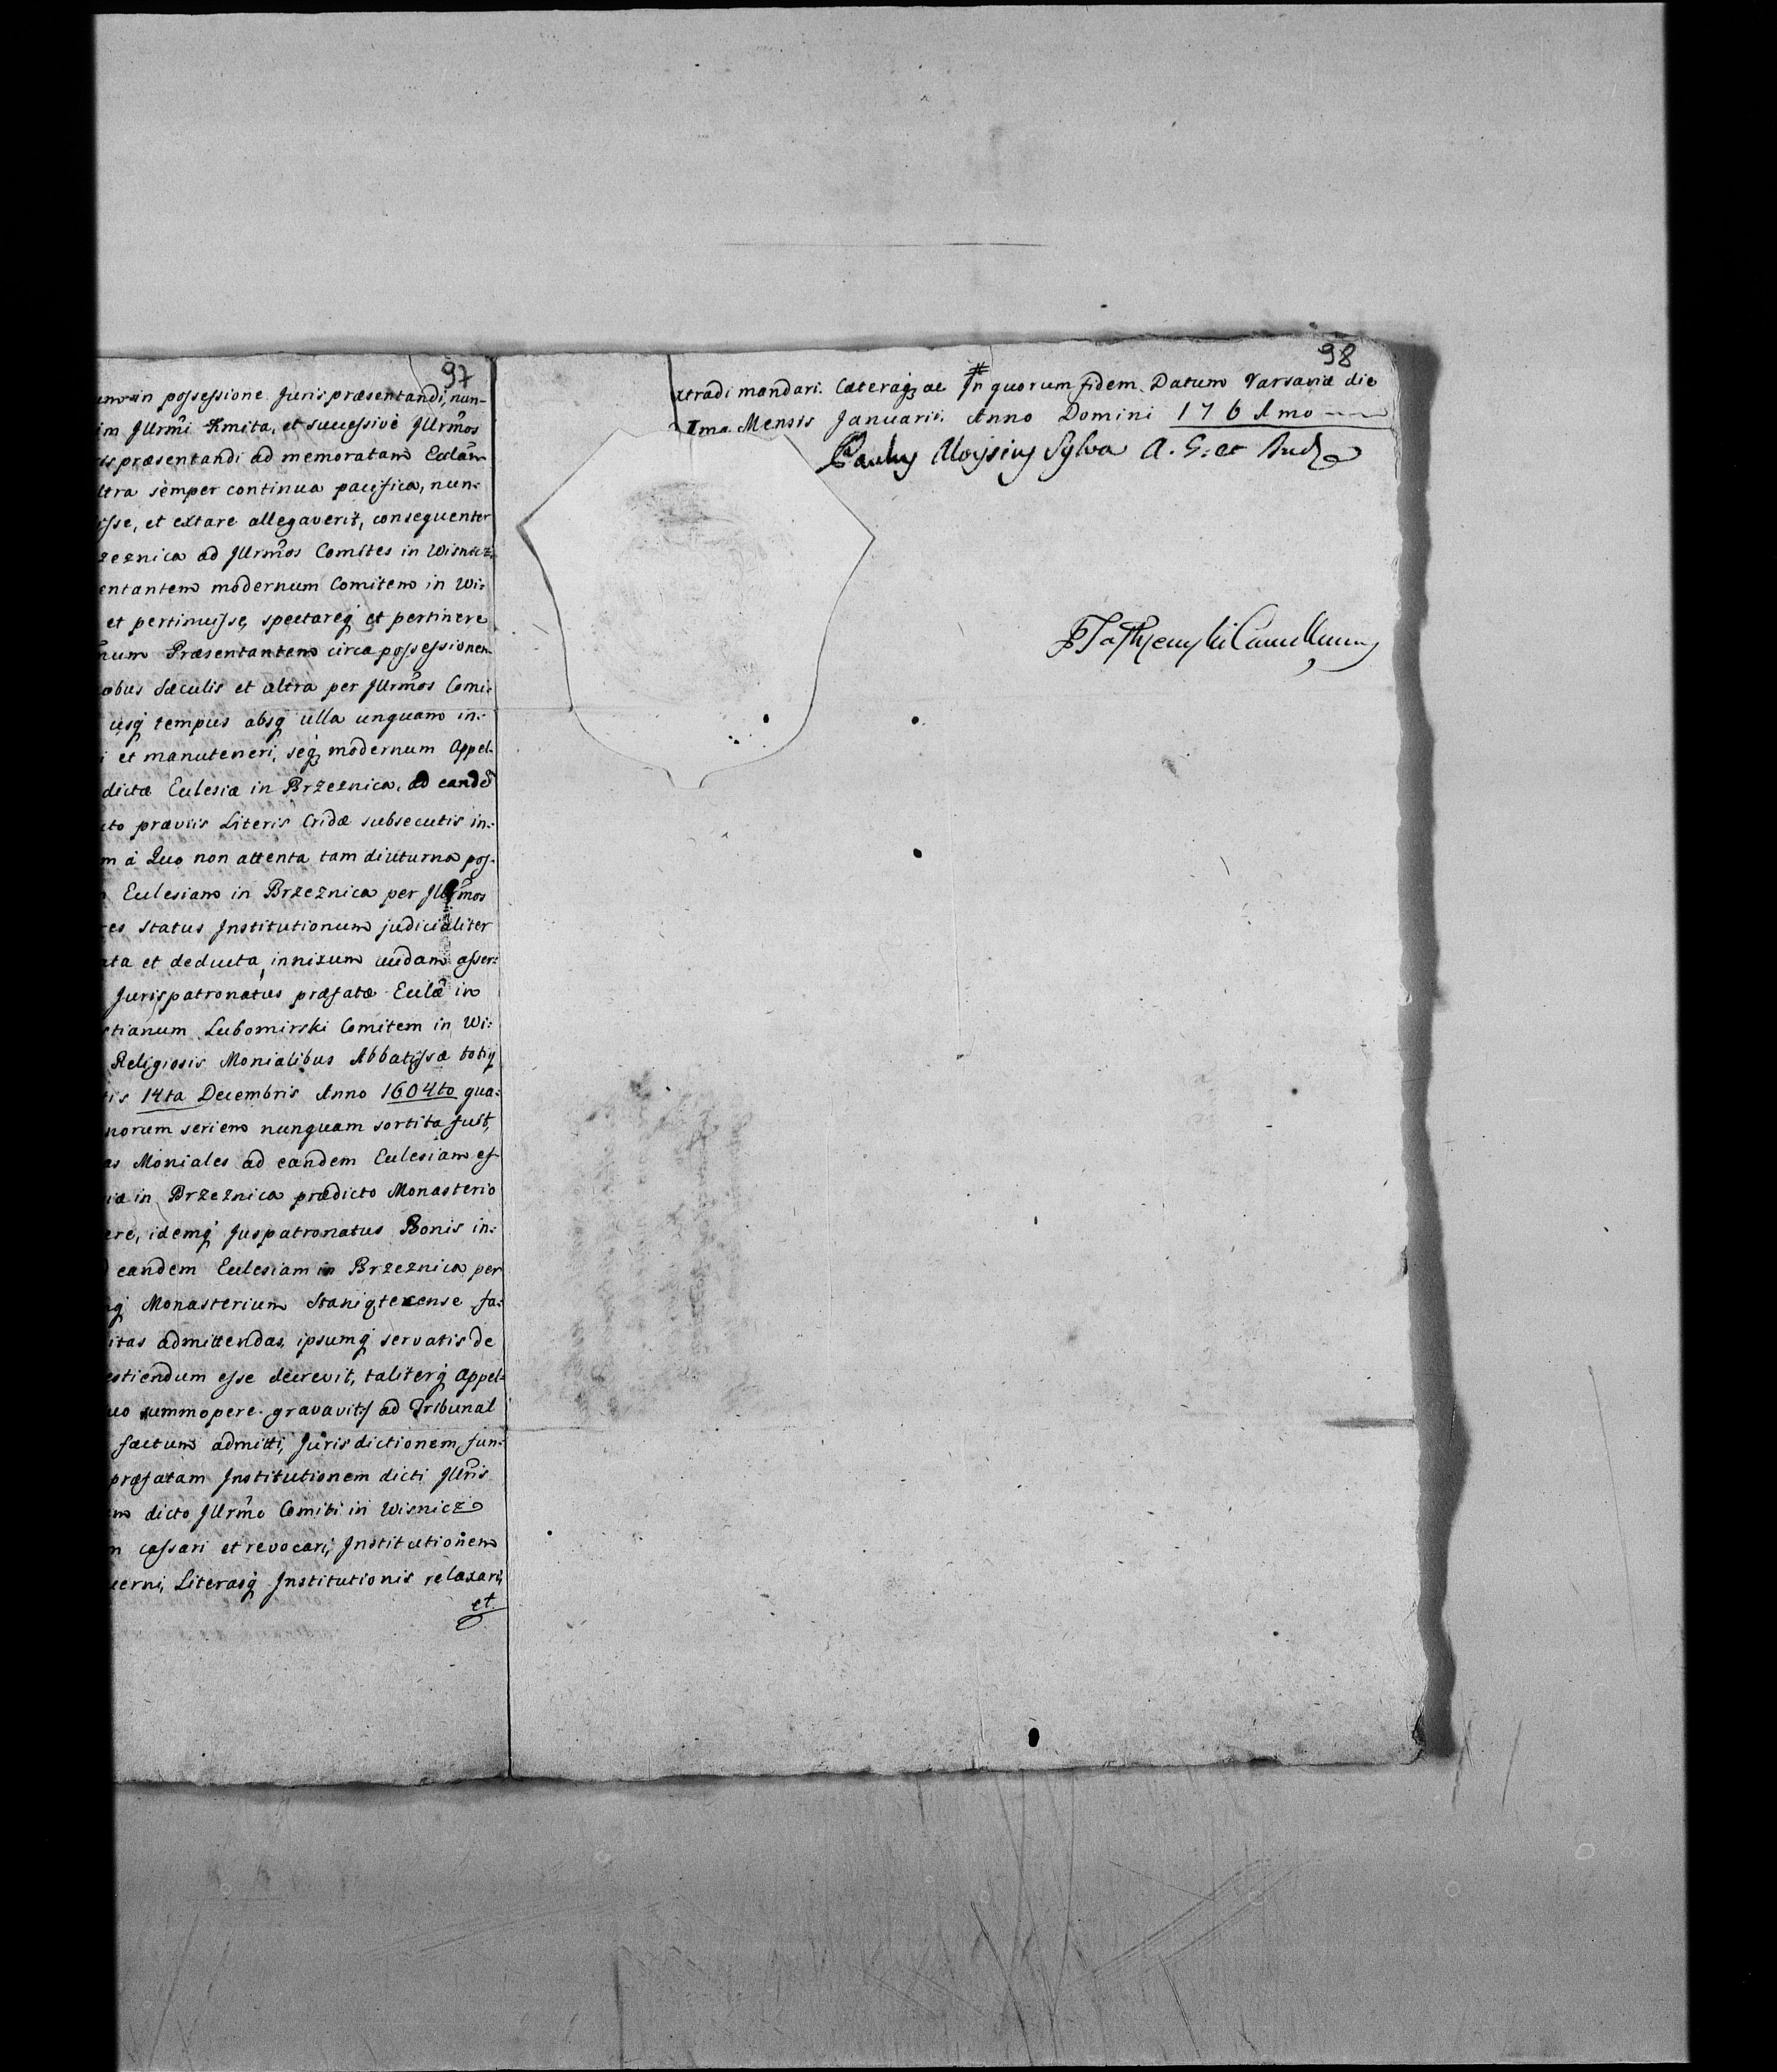 97
in possessione Juris præsentandi, nun-
im Jllrm̃i Kmita, et successivè Jllrm̃os
præsentandi ad memoratam Ecclãm
ltra semper continua pacifica, nun-
isse, et extare allegaverit, consequenter
zeznica ad Jllrm̃os Comites in Wisnicz
entantem modernum Comitem in Wi-
et pertinuisse, spectareq et pertinere
num Præsentantem circa possessionem
obus Sæculis et ultra per Jllrm̃os Comi-
usq tempus absq ulla unquam in-
i et manuteneri, seq modernum Appel-
dictæ Ecclesiæ in Brzeznica, ad eandẽ
to præviis Literis Cridæ subsecutis in-
m à Quo non attenta tam diuturna pos-
Ecclesiam in Brzeznica per Jllrm̃os
es status Institutionum judicialiter
ata et deducta, innixum nudam asser-
Jurispatronatus præfatæ Ecclæ in
stianum Lubomirski Comitem in Wi-
Religiosis Monialibus Abbatissæ totiq
is 14ta Decembris Anno 1604to qua-
norum seriem nunquam sortita fuit,
as Moniales ad eandem Ecclesiam es-
iæ in Brzeznica prædicto Monasterio
ere, idemq Juspatronatus Bonis in-
eandem Ecclesiam in Brzeznica per
q Monasterium Staniątecense fa-
itas admittendas, ipsumq servatis de
estiendum esse decrevit, taliterq Appel-
uo summopere gravavit, ad Tribunal
factum admitti, Jurisdictionem fun-
præfatam Institutionem dicti Jllris
m dicto Jllrmo Comiti in Wisnicz
n cassari et revocari, Institutionem
cerni, Literasq Institutionis relaxari,
et
98
xtradi mandari. Cæteraq ac # Jn quorum fidem. Datum Varsaviæ die
Ima Mensis Januarii. Anno Domini 1761mo
Paulus Aloysius Sylva A. G. et Aud